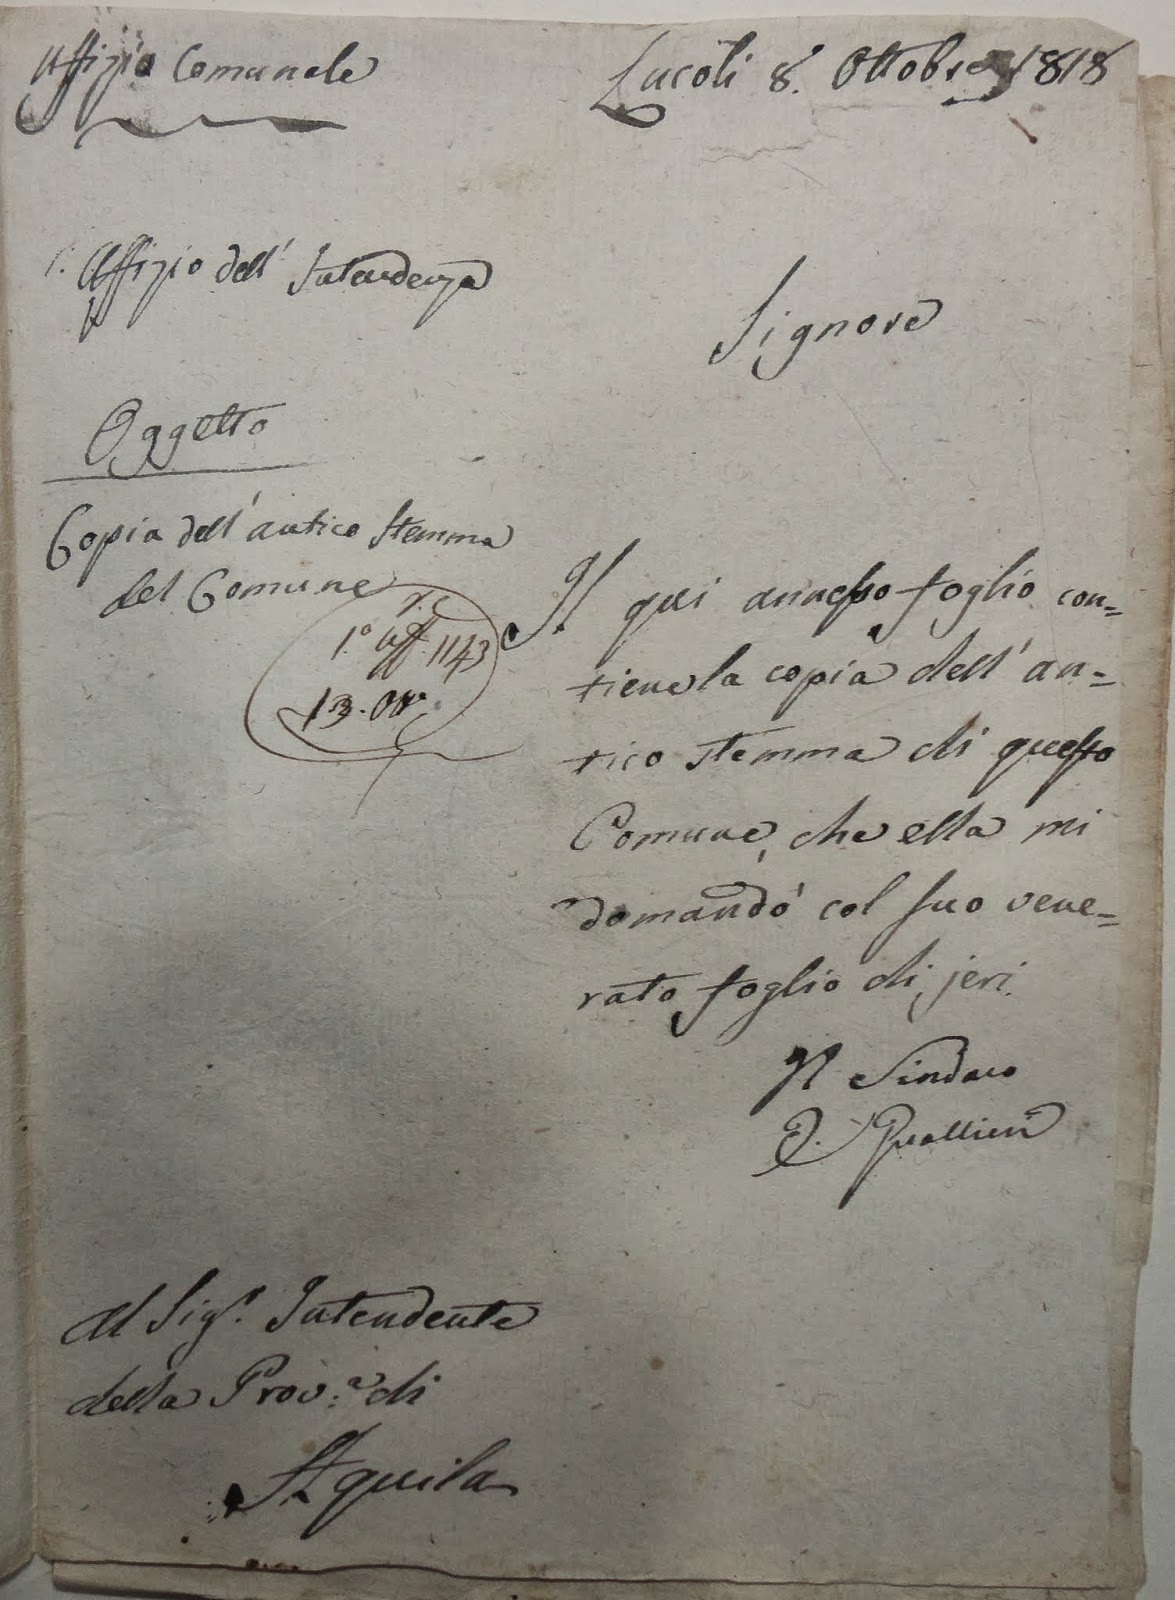 Uffizio Comunale
Lucoli 8. Ottobre 1818
1. Uffizio dell' Intendenza
Signore
Oggetto
Copia dell'antico stemma
del Comune
1.º Uff. 1143
13. Ott.e
Il qui annesso foglio con=
tiene la copia dell'an=
tico stemma di questo
Comune, che ella mi
domandò col suo vene=
rato foglio di jeri.
Il Sindaco
Gualtieri
Al Sig.r Intendente
della Prov.a di
Aquila